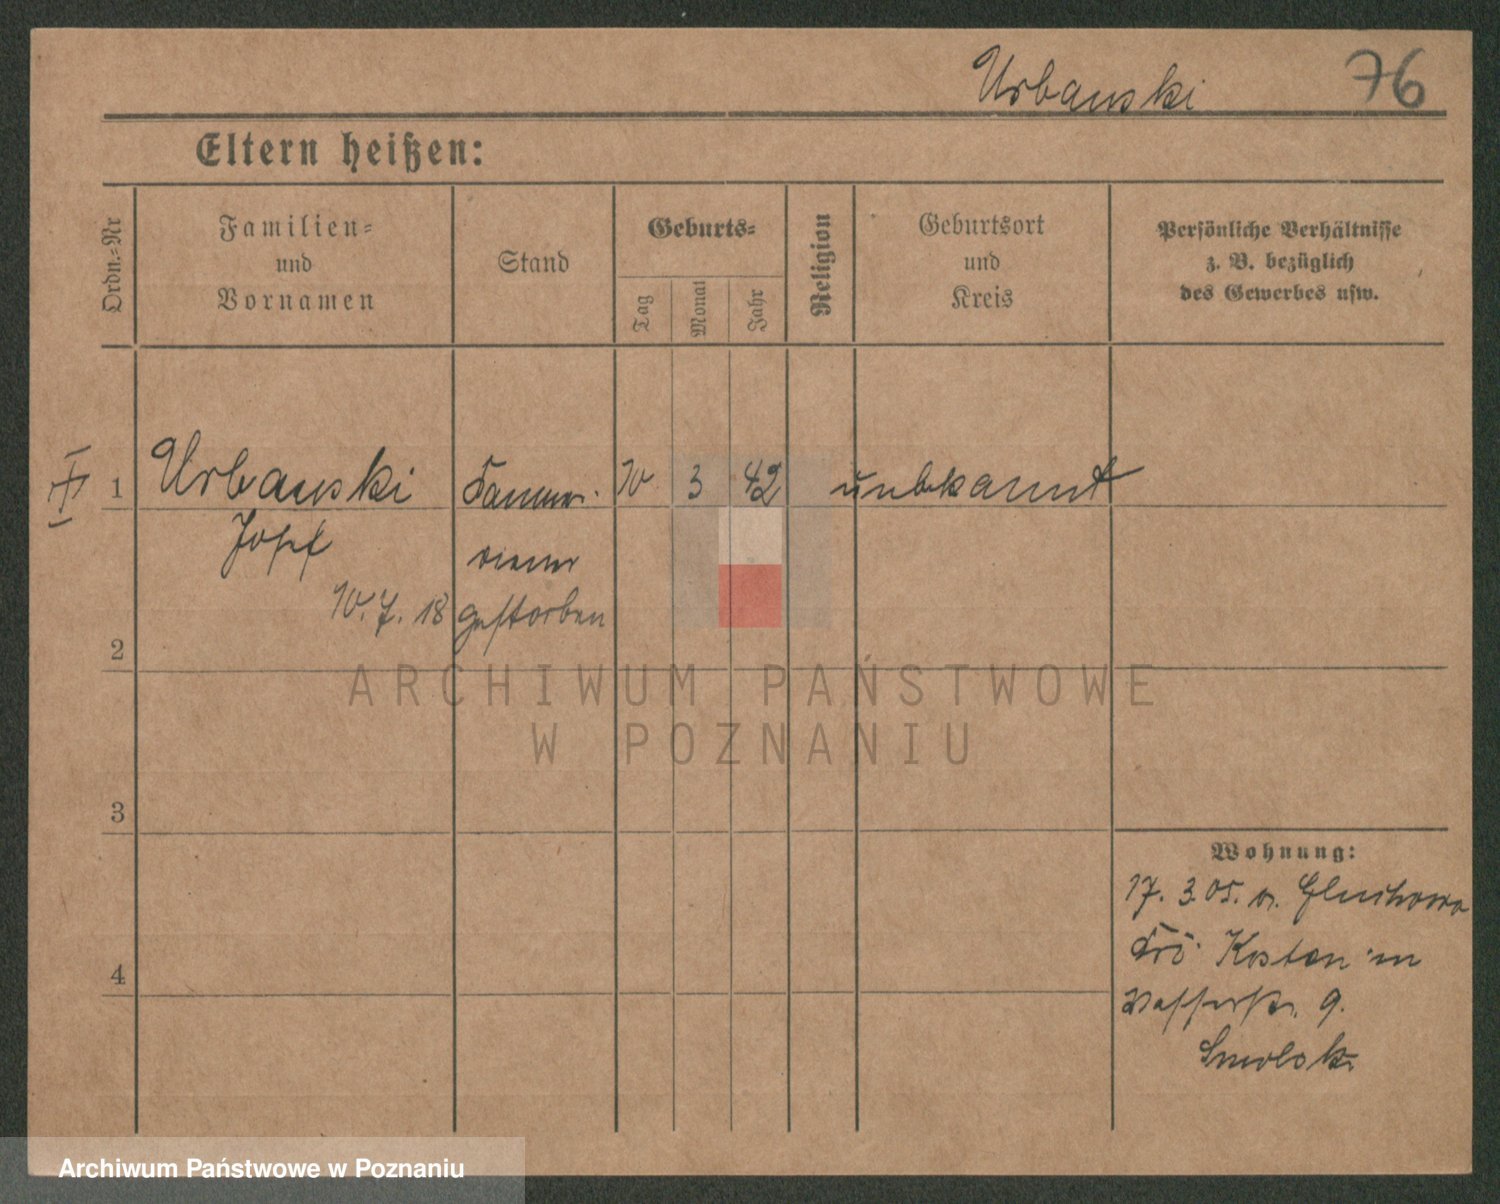 Urbanski 76
Eltern heißen:
Ordn.-Nr
Familien-
und
Vornamen
Stand
Geburts-
Tag
Monat
Jahr
Religion
Geburtsort
und
Kreis
Persönliche Verhältnisse
z. B. bezüglich
des Gewerbes usw.
1 Urbanski 3 42 unbekannt
Josef
10. 7. 18 gestorben
2
ARCHIWUM PAŃSTWOWE
W POZNANIU
3
Wohnung:
17. 3. 05. v.
Kosten in
4
Wasserstr. 9.
Archiwum Państwowe w Poznaniu